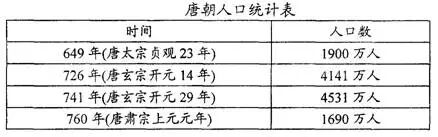 唐朝人口统计表
时间 人口数
649 年(唐太宗贞观 23 年) 1900 万人
726 年(唐玄宗开元 14 年) 4141 万人
741 年(唐玄宗开元 29 年) 4531 万人
760 年(唐肃宗上元元年) 1690 万人